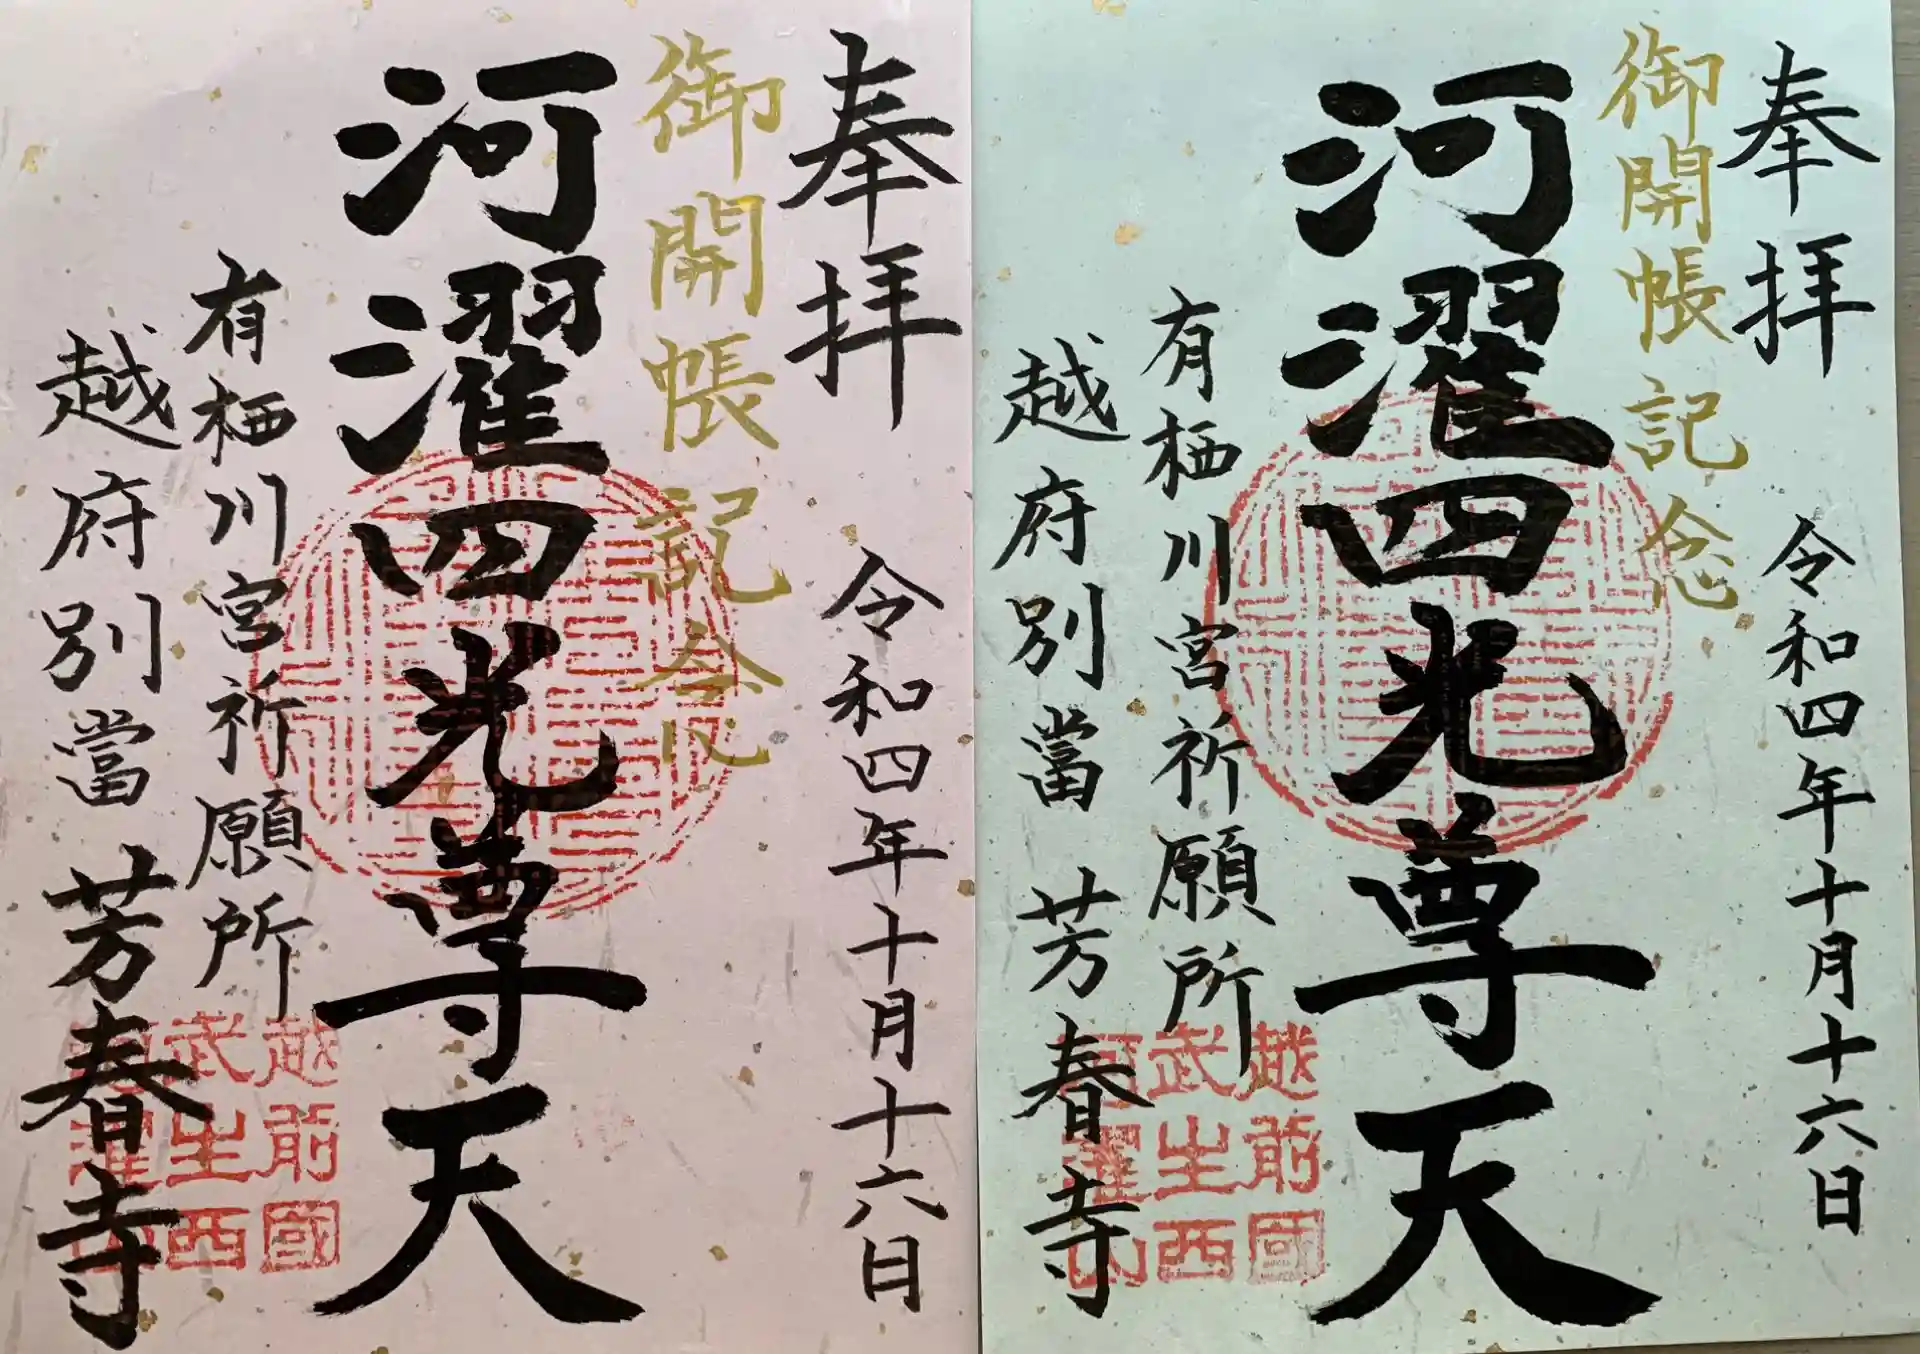 奉拝　令和四年十月十六日
御開帳記念
河濯四光尊天
有栖川宮祈願所
越府別當　芳春寺
越前國
武生西
河濯山
奉拝　令和四年十月十六日
御開帳記念
河濯四光尊天
有栖川宮祈願所
越府別當　芳春寺
越前國
武生西
河濯山